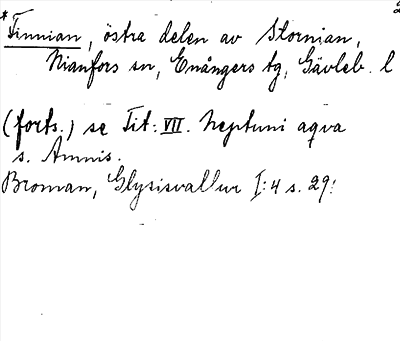 * Finnian, östra delen av Stornian, 2
Nianfors sn, Enångers tg, Gävleb. l
(forts.) se Tit: VII. Neptuni aqva
s. Amnis.
Broman, Glysisvallur I:4 s. 29: